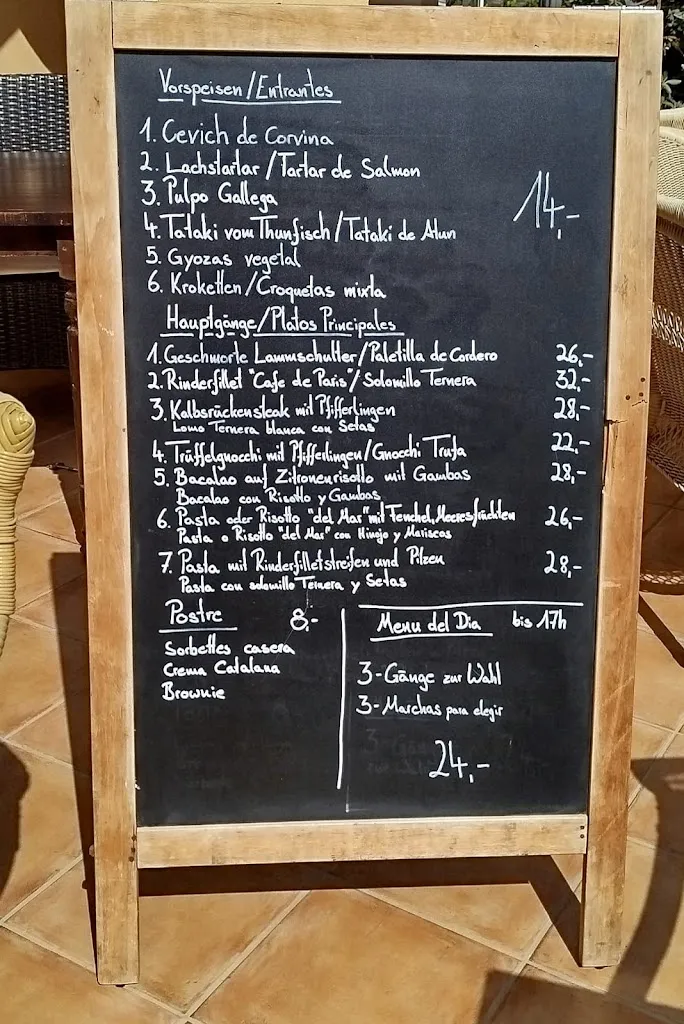 Vorspeisen/Entrantes
1. Cevich de Corvina
2. Lachstartar/Tartar de Salmon
3. Pulpo Gallega
14,-
4. Tataki vom Thunfisch/Tataki de Atun
5. Gyozas vegetal
6. Kroketten/Croquetas mixta
Hauptgänge/Platos Principales
1. Geschmorte Lammschulter/Paletilla de Cordero 26,-
2. Rinderfillet "Cafe de Paris"/Solomillo Ternera 32,-
3. Kalbsrückensteak mit Pfifferlingen 28,-
Lomo Ternera blanca con Setas
4. Trüffelgnocchi mit Pfifferlingen/Gnocchi Trufa 22,-
5. Bacalao auf Zitronenrisotto mit Gambas 28,-
Bacalao con Risotto y Gambas
6. Pasta oder Risotto "del Mar" mit Fenchel, Meeresfrüchten 26,-
Pasta o Risotto "del Mar" con Hinojo y Mariscos
7. Pasta mit Rinderfilletstreifen und Pilzen 28,-
Pasta con solomillo Ternera y Setas
Postre 8,-
Sorbettes casera
Crema Catalana
Brownie
Menu del Dia bis 17h
3-Gänge zur Wahl
3-Marchas para elegir
24,-